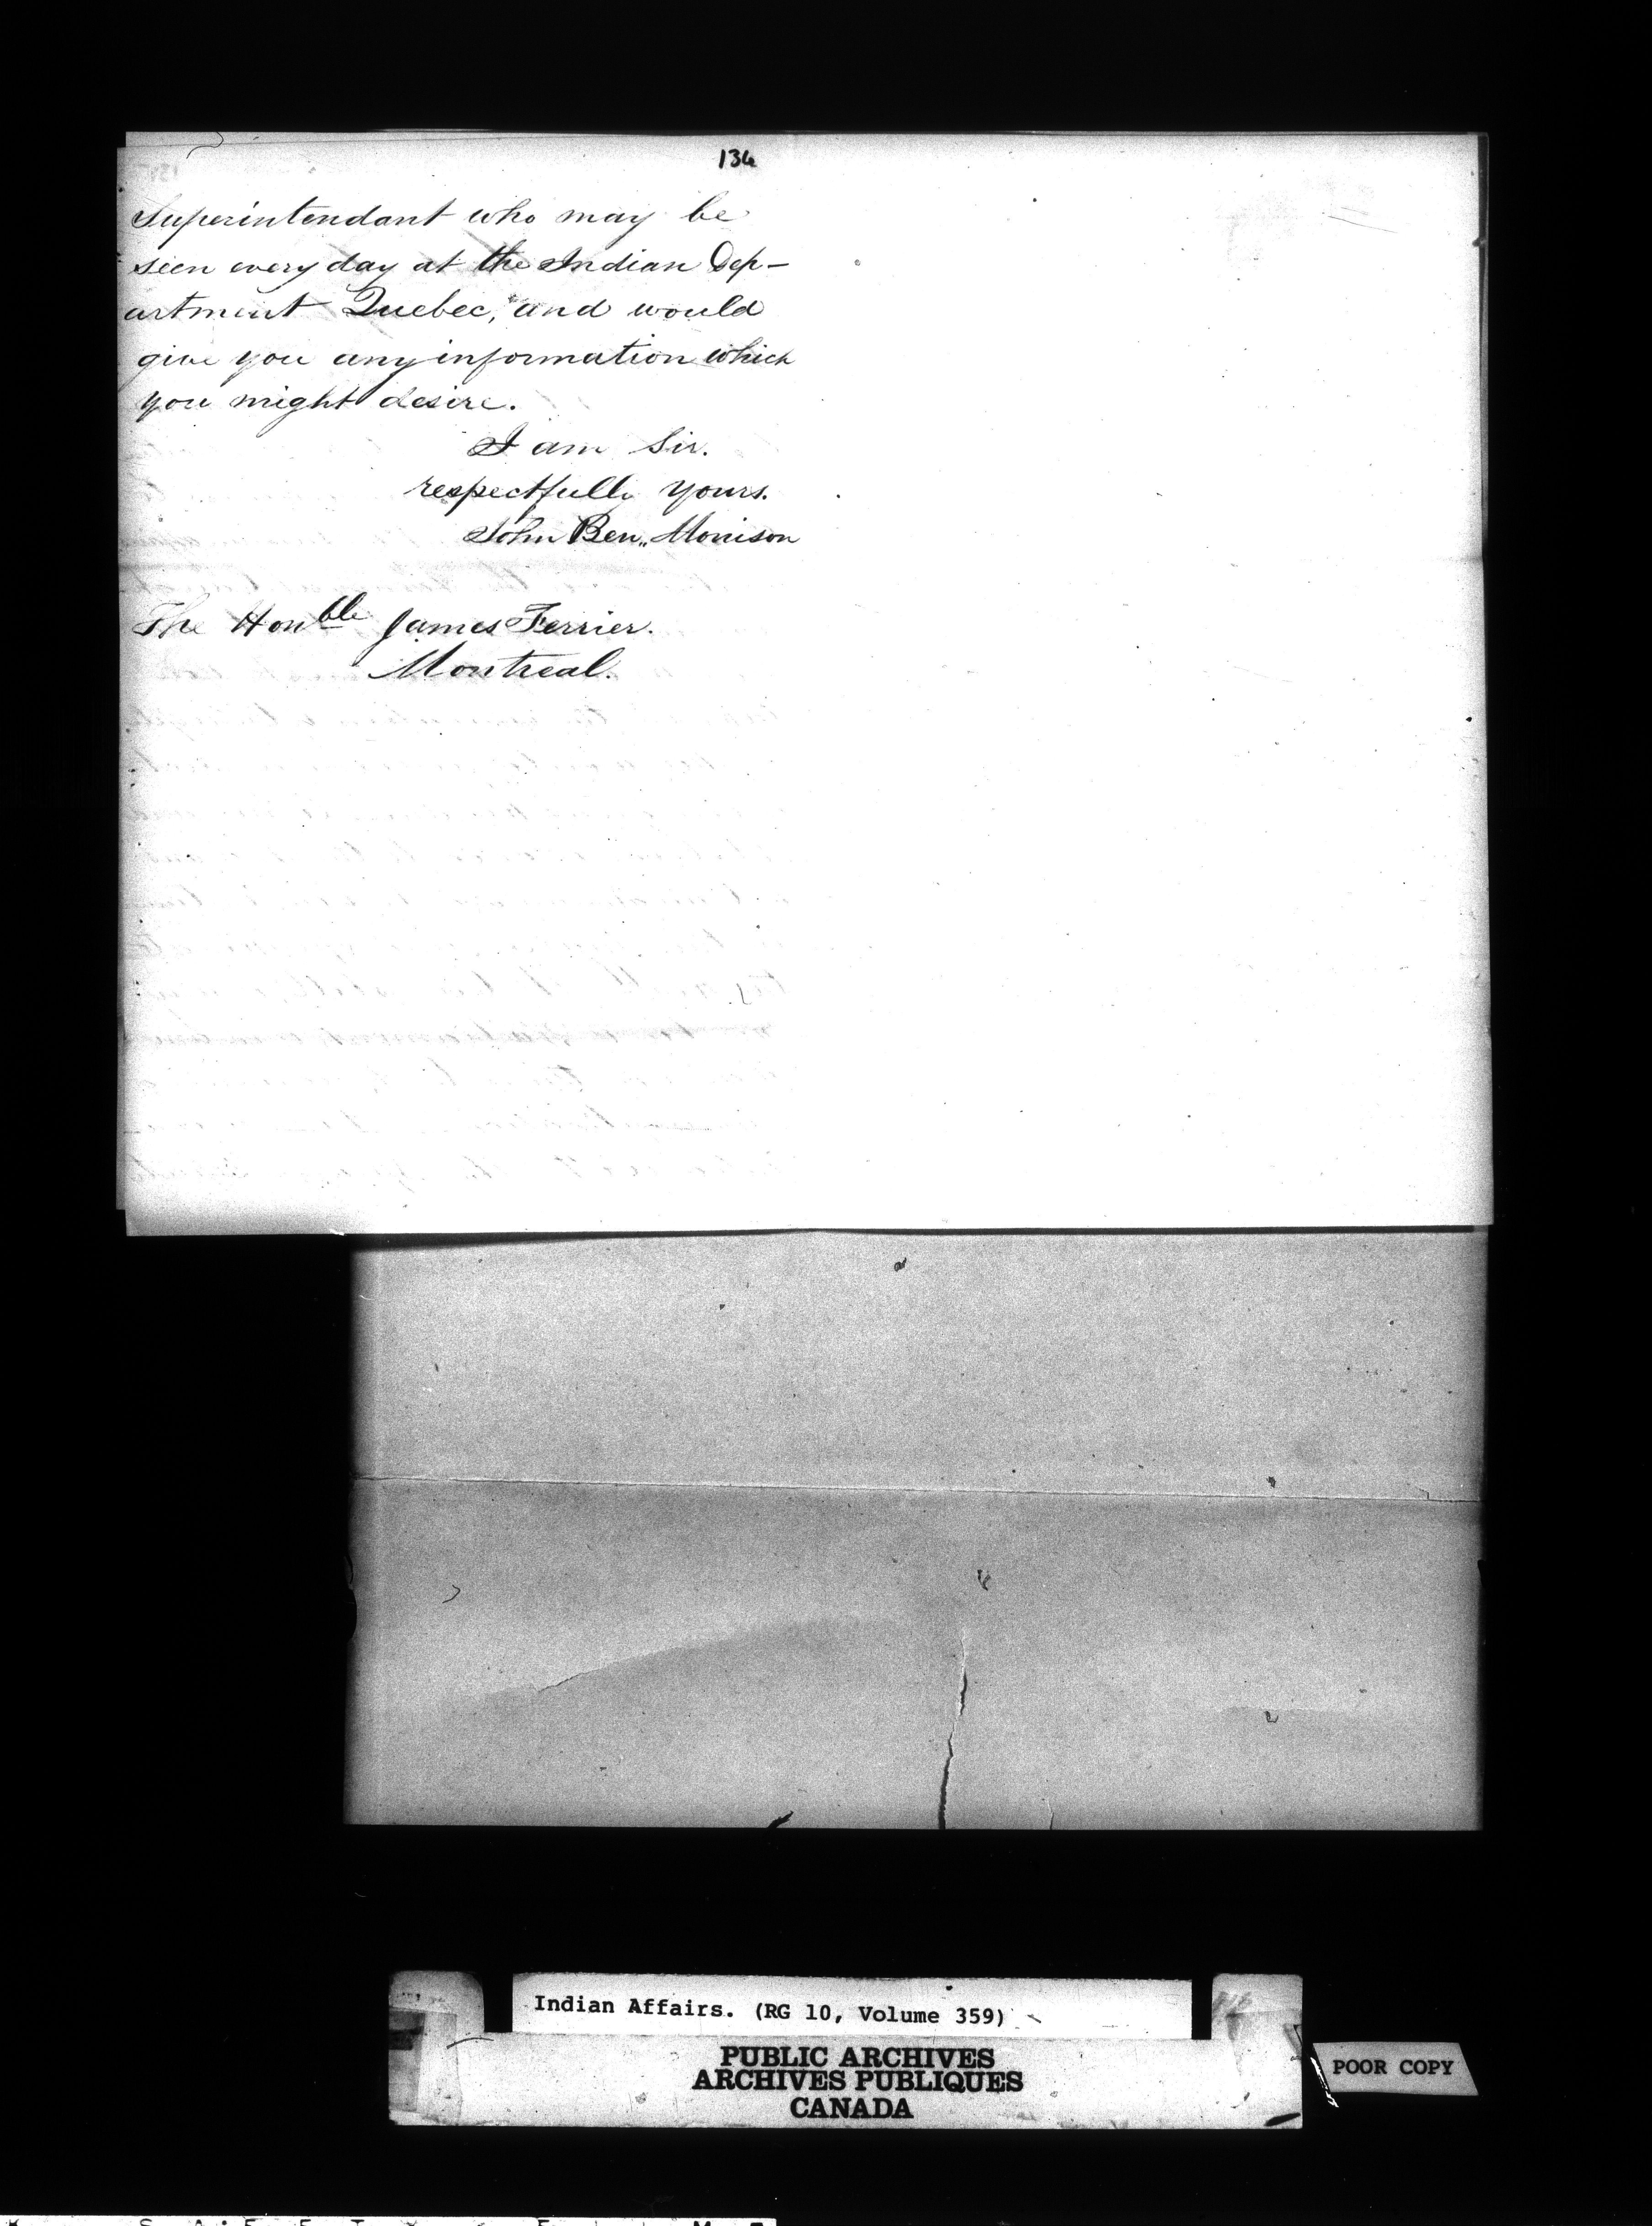 136
Superintendant who may be
seen every day at the Indian Dep-
artment Quebec, and would
give you any information which
you might desire.
I am Sir.
respectfully yours.
John Ben,, Monison
The Honble James Ferrier.
Montreal.
Indian Affairs. (RG 10, Volume 359)
PUBLIC ARCHIVES
ARCHIVES PUBLIQUES
CANADA
POOR COPY